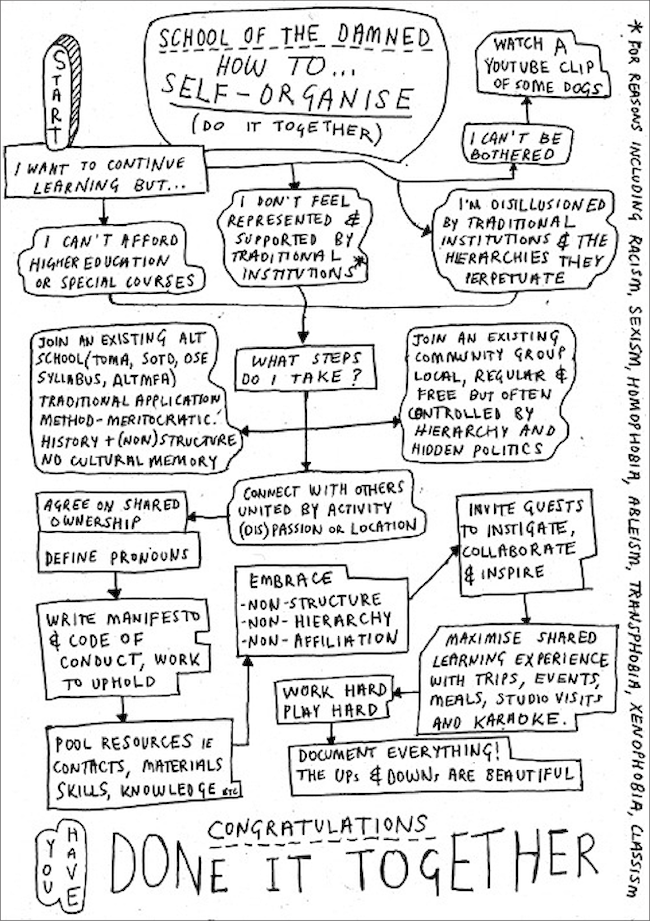 SCHOOL OF THE DAMNED
HOW TO...
SELF-ORGANISE
(DO IT TOGETHER)
START
I WANT TO CONTINUE
LEARNING BUT...
WATCH A
YOUTUBE CLIP
OF SOME DOGS
I CAN'T BE
BOTHERED
I CAN'T AFFORD
HIGHER EDUCATION
OR SPECIAL COURSES
I DON'T FEEL
REPRESENTED &
SUPPORTED BY
TRADITIONAL
INSTITUTIONS*
I'M DISILLUSIONED
BY TRADITIONAL
INSTITUTIONS & THE
HIERARCHIES THEY
PERPETUATE
JOIN AN EXISTING ALT
SCHOOL (TOMA, SOTD, OSE
SYLLABUS, ALTMFA)
TRADITIONAL APPLICATION
METHOD-MERITOCRATIC.
HISTORY + (NON) STRUCTURE
NO CULTURAL MEMORY
WHAT STEPS
DO I TAKE?
JOIN AN EXISTING
COMMUNITY GROUP
LOCAL, REGULAR &
FREE BUT OFTEN
CONTROLLED BY
HIERARCHY AND
HIDDEN POLITICS
CONNECT WITH OTHERS
UNITED BY ACTIVITY
(DIS)PASSION OR LOCATION
AGREE ON SHARED
OWNERSHIP
DEFINE PRONOUNS
WRITE MANIFESTO
& CODE OF
CONDUCT, WORK
TO UPHOLD
POOL RESOURCES IE
CONTACTS, MATERIALS
SKILLS, KNOWLEDGE ETC
EMBRACE
-NON-STRUCTURE
-NON-HIERARCHY
-NON-AFFILIATION
INVITE GUESTS
TO INSTIGATE,
COLLABORATE
& INSPIRE
MAXIMISE SHARED
LEARNING EXPERIENCE
WITH TRIPS, EVENTS,
MEALS, STUDIO VISITS
AND KARAOKE.
WORK HARD
PLAY HARD
DOCUMENT EVERYTHING!
THE UPs & DOWNs ARE BEAUTIFUL
CONGRATULATIONS
YOU HAVE
DONE IT TOGETHER
* FOR REASONS INCLUDING RACISM, SEXISM, HOMOPHOBIA, ABLEISM, TRANSPHOBIA, XENOPHOBIA, CLASSISM